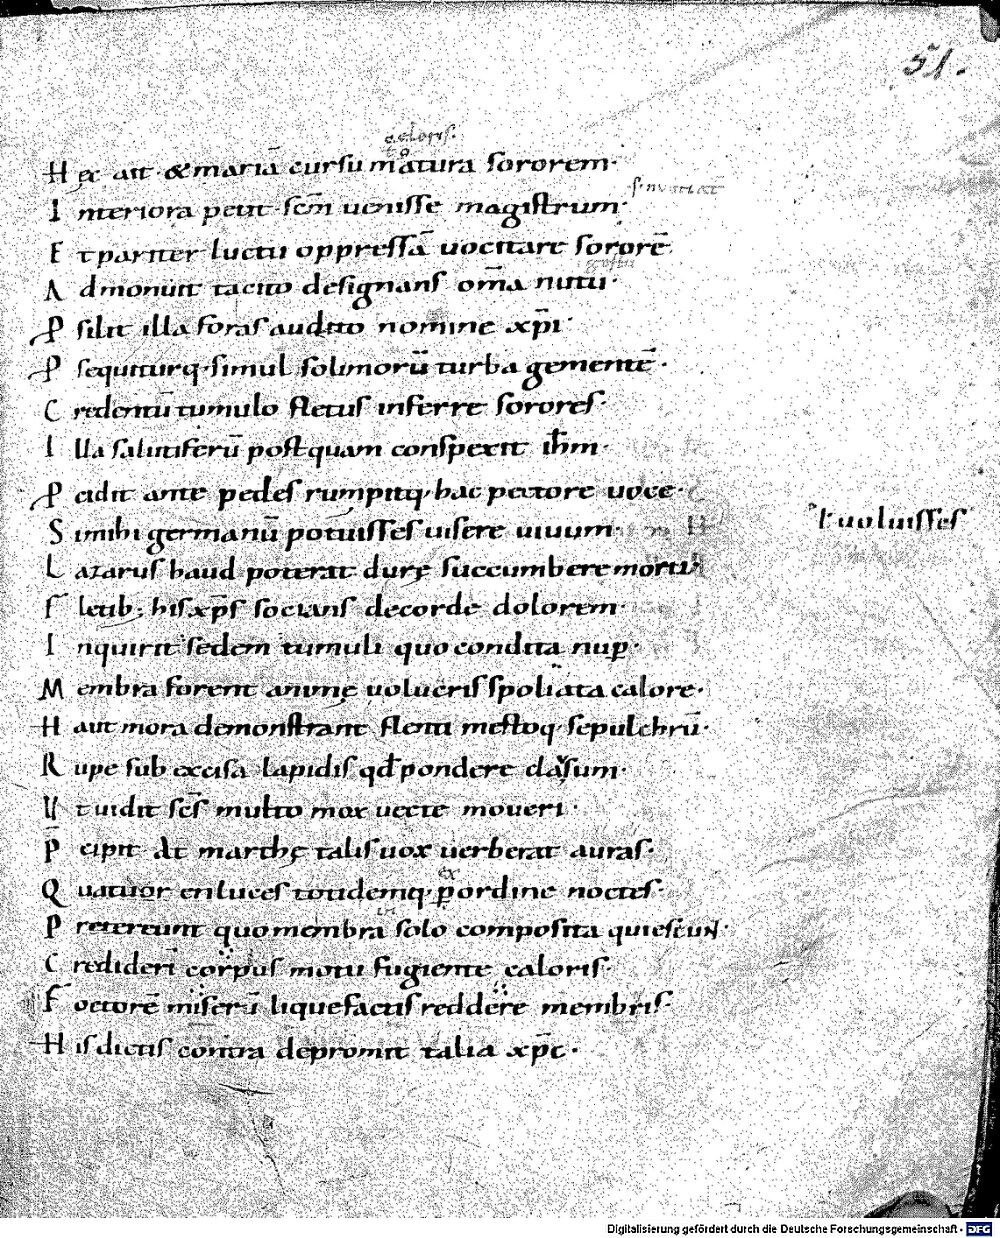 51.
.i. celeris.
Hęc ait & mariā cursu matura sororem·
Interiora petit· sc̄m uenisse magistrum·
Et pariter luctu oppressā uocitare sororē·
gestu
Admonuit tacito designans om̄a nutu·
Psilit illa foras audito nomine xp̄i·
Psequiturq· simul solimorū turba gementē·
Credentū tumulo fletus inferre sorores·
Illa salutiferū postquam conspexit ihm·
Pcidit ante pedes rumpitq· hac pectore uoce·
Si mihi germanū potuisses uisere uiuum·
ł uoluisses
Lazarus haud poterat durę succumbere morti·
Fletib; his xp̄s socians de corde dolorem·
Inquirit sedem tumuli quo condita nup·
Membra forent animę uolucris spoliata calore·
Haut mora demonstrant flenti mestoq· sepulchrū·
Rupe sub excisa lapidis qđ pondere clausum·
Ut uidit sc̄s multo mox uecte moueri·
P̄cipit· At marthę talis uox uerberat auras·
ex
Quatuor en luces totidemq· p ordine noctes·
Pretereunt quo membra solo composita quiescunt·
Crediderī corpus motu fugiente caloris·
Foctorē miserū liquefactis reddere membris·
His dictis contra depromit talia xp̄c·
Digitalisierung gefördert durch die Deutsche Forschungsgemeinschaft - DFG